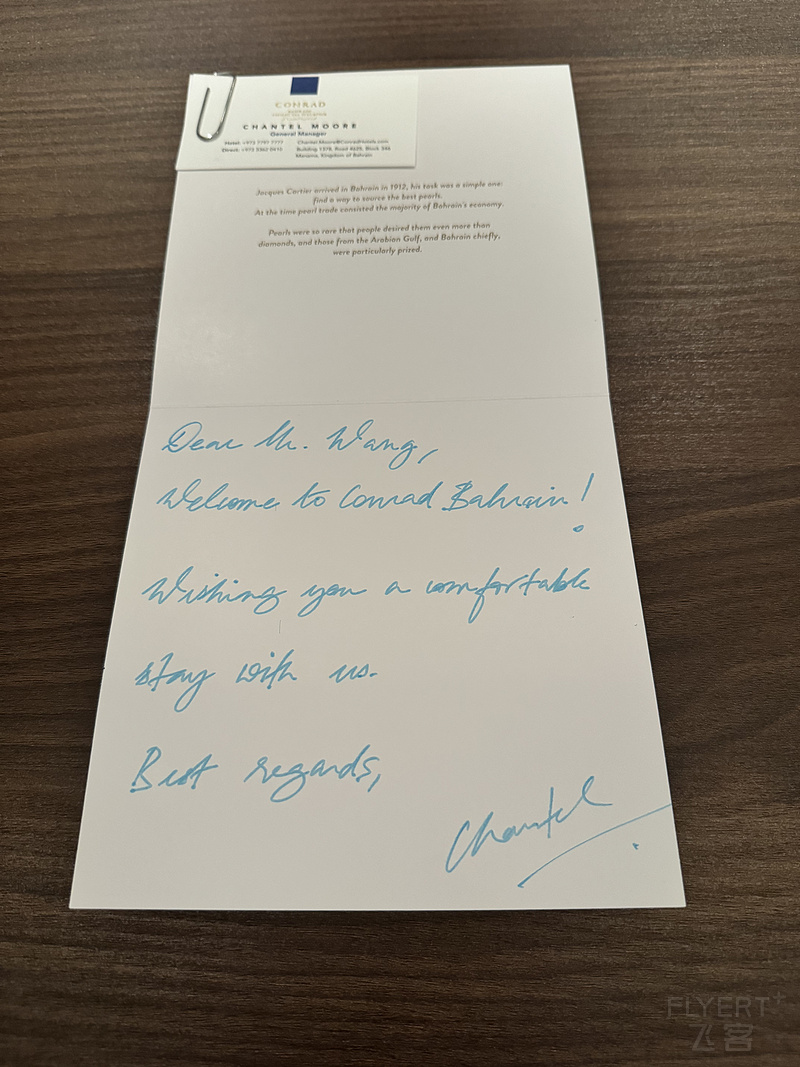 CONRAD
CHANTEL MOORE
General Manager
Hotel: +973 7797 7777 Chantel.Moore@ConradHotels.com
Direct: Building 1398, Road 4626, Block 346
Manama, Kingdom of Bahrain
Jacques Cartier arrived in Bahrain in 1912, his task was a simple one:
find a way to source the best pearls.
At the time pearl trade consisted the majority of Bahrain's economy.
Pearls were so rare that people desired them even more than
diamonds, and those from the Arabian Gulf, and Bahrain chiefly,
were particularly prized.
Dear Mr. Wang,
Welcome to Conrad Bahrain!
Wishing you a comfortable
stay with us.
Best regards,
Chantel
FLYERT+
飞客